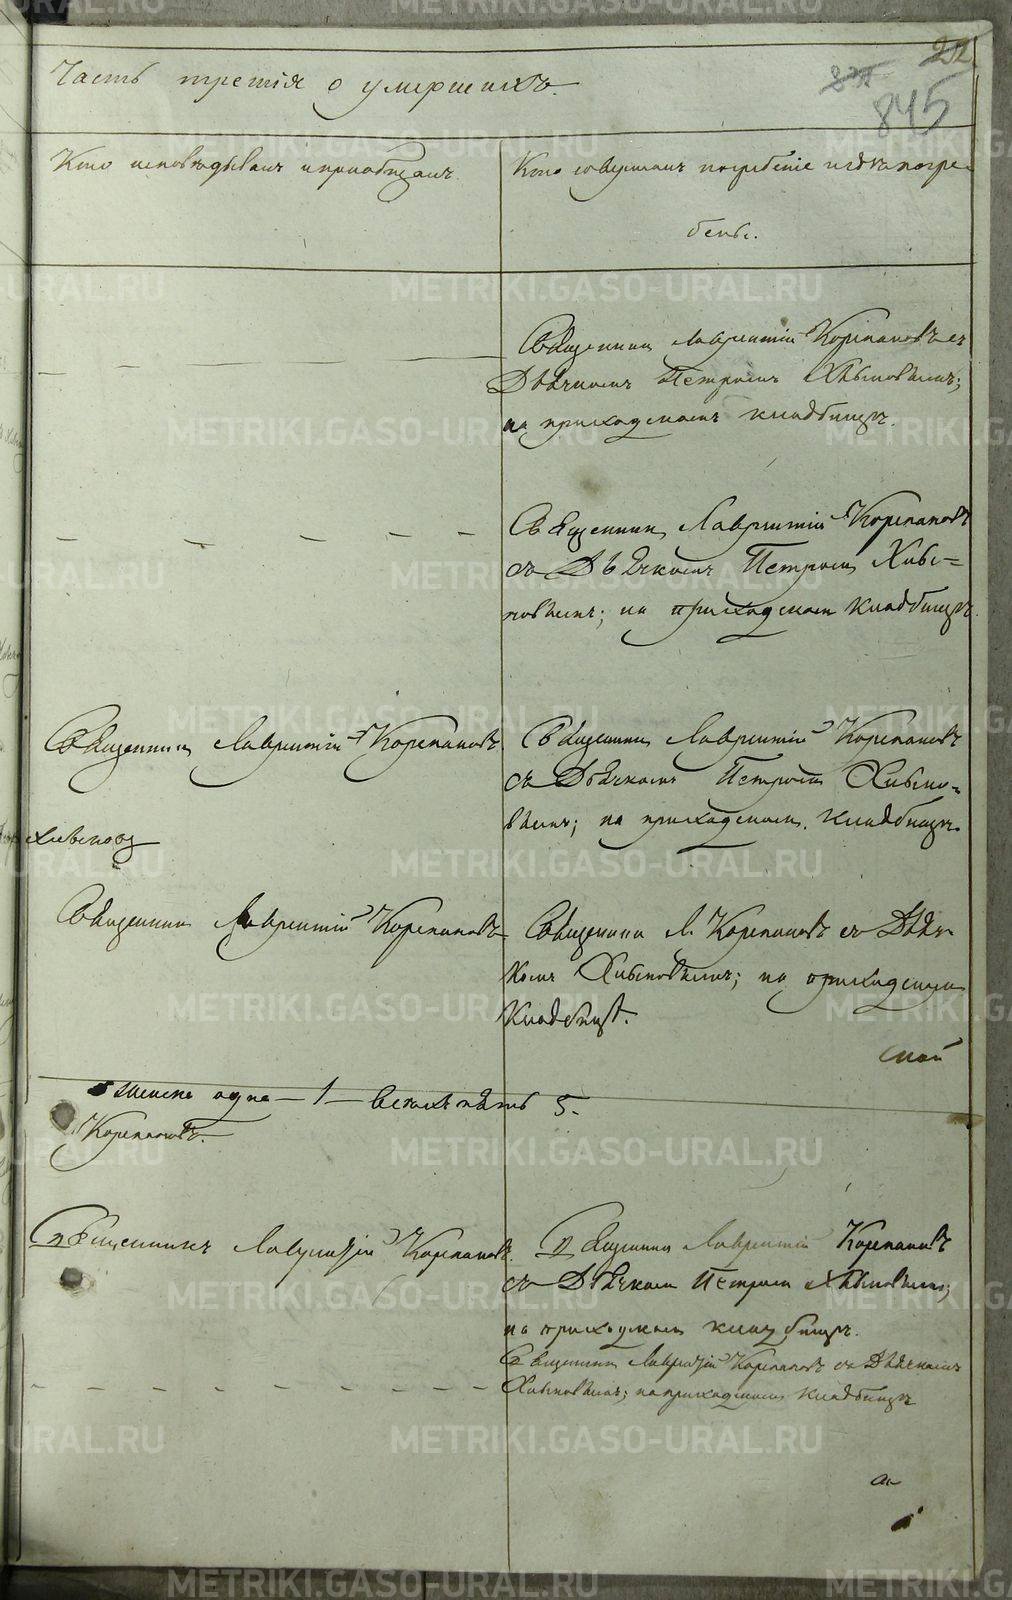 212
845
Часть третія о умершихъ.
Кто исповѣдывалъ и приобщалъ.
Кто совершалъ погребеніе и гдѣ погре-
бены.
Священник Лаврентій Корепановъ съ
Дьячкомъ Петромъ Хлыновымъ;
на приходскомъ кладбищѣ.
Священник Лаврентій Корепановъ
съ Дьячкомъ Петромъ
новымъ; на приходскомъ кладбищѣ.
Священник Лаврентій Корепановъ
Священник Лаврентій Корепановъ
съ Дьячкомъ Петромъ
вымъ; на приходскомъ кладбищѣ
Священник Лаврентій Корепановъ
Священник Л. Корепановъ съ Дьяч-
комъ Хлыновымъ; на приходскомъ
кладбищѣ.
одна — 1 — всего пять 5.
Корепановъ.
Священникъ Лаврентій Корепановъ.
Священник Лаврентій Корепановъ
съ Дьячкомъ Петромъ Хлыновымъ;
на приходскомъ кладбищѣ.
Священник Лаврентій Корепановъ съ Дьячкомъ
Хлыновымъ; на приходскомъ кладбищѣ
METRIKI.GASO-URAL.RU